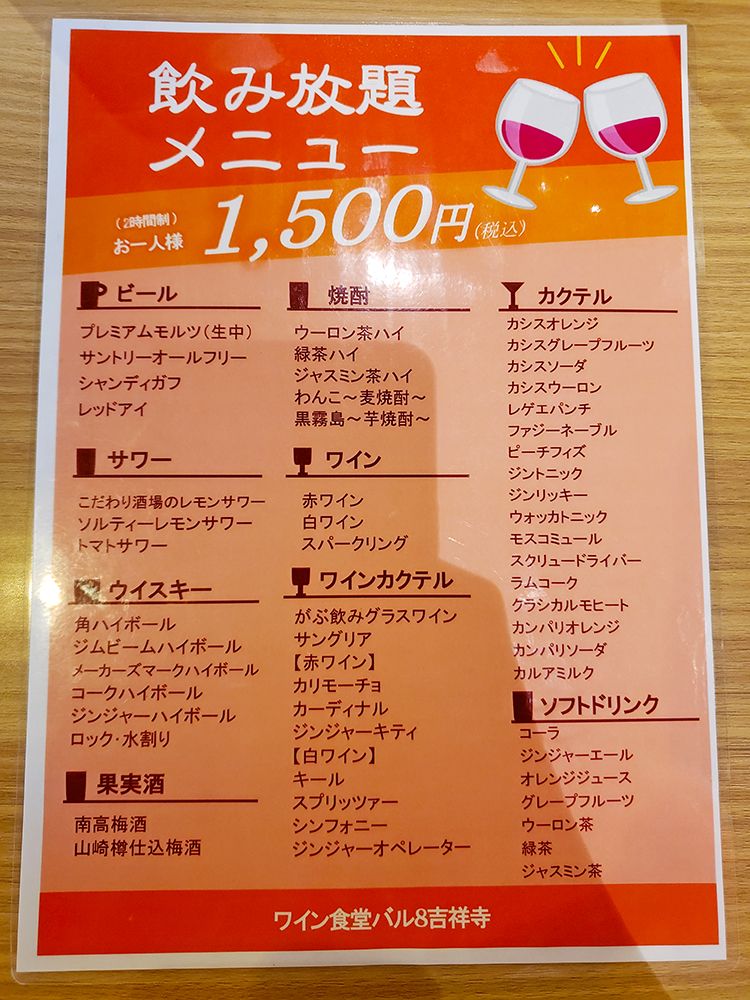 飲み放題
メニュー
(2時間制)
お一人様 1,500円(税込)
ビール
プレミアムモルツ(生中)
サントリーオールフリー
シャンディガフ
レッドアイ
サワー
こだわり酒場のレモンサワー
ソルティーレモンサワー
トマトサワー
ウイスキー
角ハイボール
ジムビームハイボール
メーカーズマークハイボール
コークハイボール
ジンジャーハイボール
ロック・水割り
果実酒
南高梅酒
山崎樽仕込梅酒
焼酎
ウーロン茶ハイ
緑茶ハイ
ジャスミン茶ハイ
わんこ～麦焼酎～
黒霧島～芋焼酎～
ワイン
赤ワイン
白ワイン
スパークリング
ワインカクテル
がぶ飲みグラスワイン
サングリア
【赤ワイン】
カリモーチョ
カーディナル
ジンジャーキティ
【白ワイン】
キール
スプリッツァー
シンフォニー
ジンジャーオペレーター
カクテル
カシスオレンジ
カシスグレープフルーツ
カシスソーダ
カシスウーロン
レゲエパンチ
ファジーネーブル
ピーチフィズ
ジントニック
ジンリッキー
ウォッカトニック
モスコミュール
スクリュードライバー
ラムコーク
クラシカルモヒート
カンパリオレンジ
カンパリソーダ
カルアミルク
ソフトドリンク
コーラ
ジンジャーエール
オレンジジュース
グレープフルーツ
ウーロン茶
緑茶
ジャスミン茶
ワイン食堂バル8吉祥寺